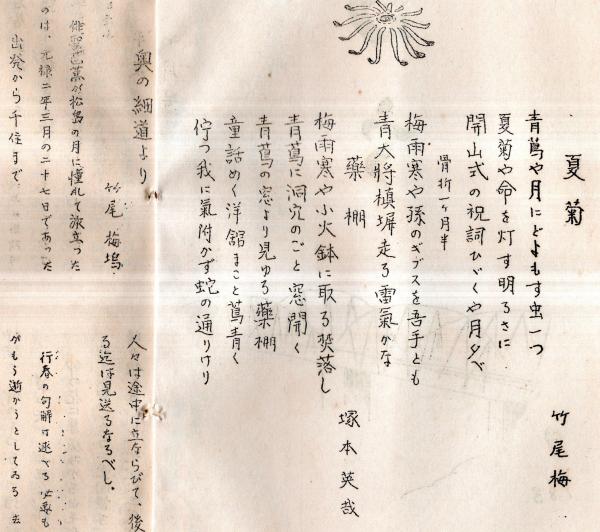 夏菊
竹尾梅
青蔦や月にどよもす虫一つ
夏菊や命を灯す明るさに
開山式の祝詞ひゞくや月夕べ
骨折一ヶ月半
梅雨寒や孫のギブスを吾手とも
青大将槙塀走る雷氣かな
藥棚
塚本英哉
梅雨寒や小火鉢に取る焚落し
青蔦に洞穴のごと窓開く
青蔦の窓より見ゆる藥棚
童話めく洋舘まこと蔦青く
佇つ我に氣附かず蛇の通りけり
奥の細道より
竹尾梅塢
俳聖芭蕉が松島の月に憧れて旅立った
のは、元禄二年三月の二十七日であった
出発から千住まで
人々は途中に立ならびて、後
る迄は見送るなるべし。
行春の句解は述べる必要も
がもう逝かうとしてゐる 去